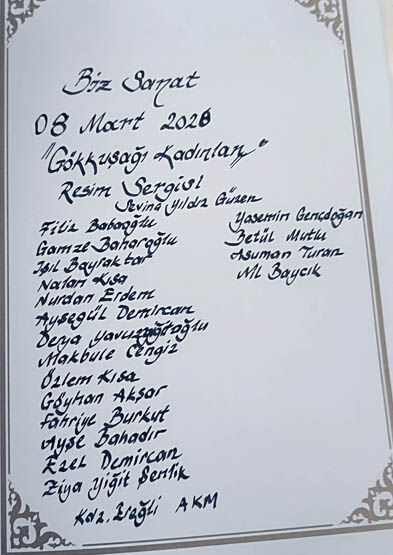 Biz Sanat
08 Mart 2026
"Gökkuşağı Kadınları"
Resim Sergisi
Sevinç Yıldız Güzen
Filiz Babaoğlu
Gamze Baharoğlu
Işıl Bayraktar
Nalan Kısa
Nurdan Erdem
Ayşegül Demircan
Derya Yavuzyiğitoğlu
Makbule Cengiz
Özlem Kısa
Gökhan Aksar
Fahriye Burkut
Ayşe Bahadır
Ezel Demircan
Ziya Yiğit Şenlik
Yasemin Gençdoğan
Betül Mutlu
Asuman Turan
Baycık
Kdz. Ereğli AKM